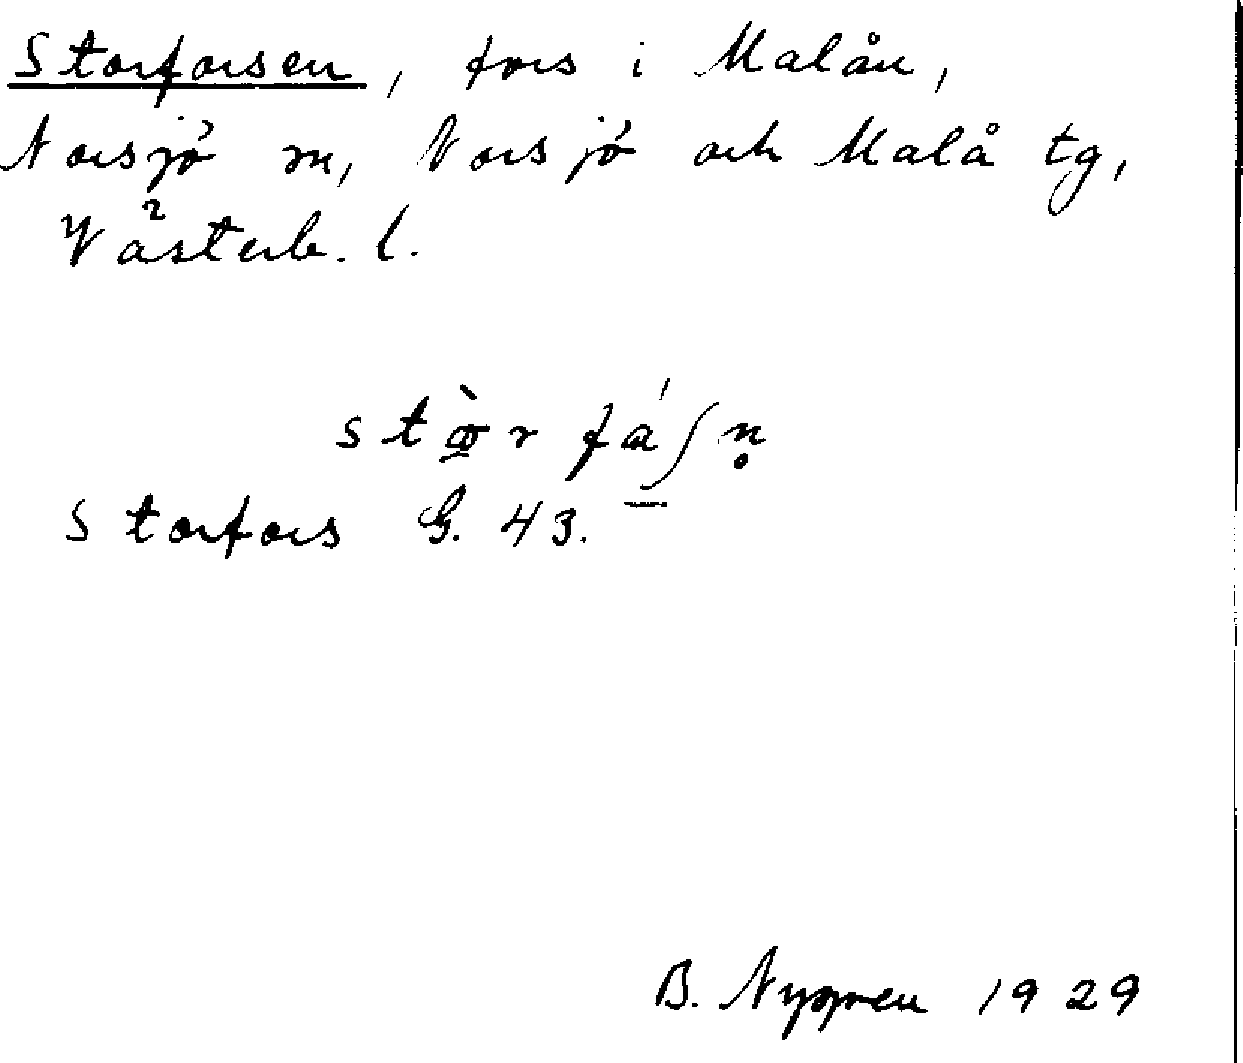 Storforsen, fors i Malån,
Norsjö sn, Norsjö och Malå tg,
Västerb. l.
Storfors G. 43.
B. Nygren 1929